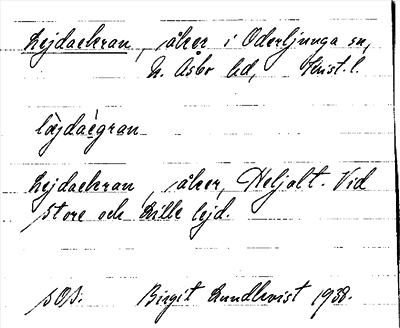 Lejdaekran, åker i Oderljunga sn,
N. Åsbo hd, Krist. l.
läjdaègran
Lejdaekran, åker, Heljalt. Vid
store och lille lejd.
SOS. Birgit Lundkvist 1938.